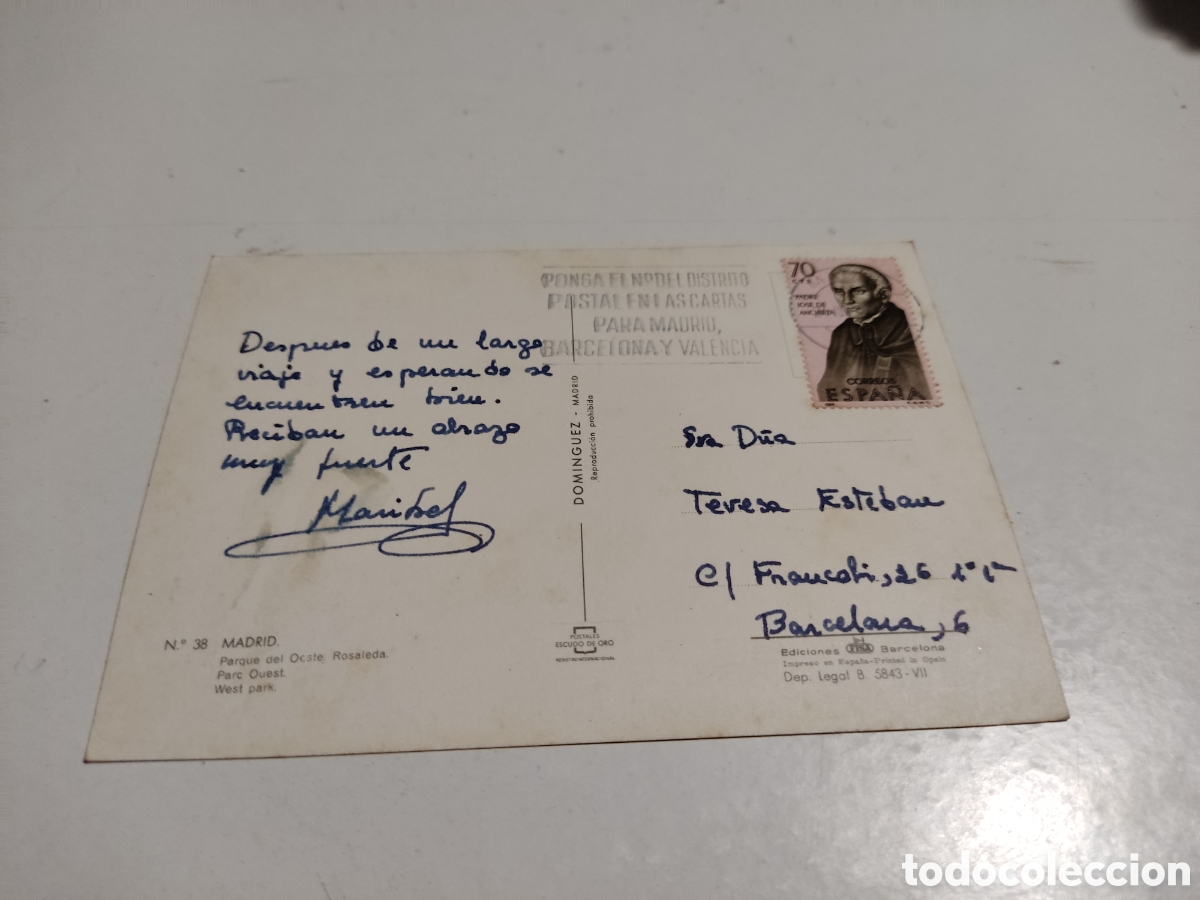 PONGA EL Nº DEL DISTRITO
POSTAL EN LAS CARTAS
PARA MADRID,
BARCELONA Y VALENCIA
70
CTS
PADRE
JOSE DE
ANCHIETA
CORREOS
ESPAÑA
Despues de un largo
viaje y esperando se
encuentren bien.
Reciban un abrazo
muy fuerte
Maribel
DOMINGUEZ - MADRID
Reproducción prohibida
Sra Dña
Teresa Esteban
C/ Francolí, 26 1º 1ª
Barcelona, 6
N.º 38 MADRID.
Parque del Oeste. Rosaleda.
Parc Ouest.
West park.
POSTALES
ESCUDO DE ORO
Ediciones FISA Barcelona
Impreso en España-Printed in Spain
Dep. Legal B. 5843-VII
todocoleccion